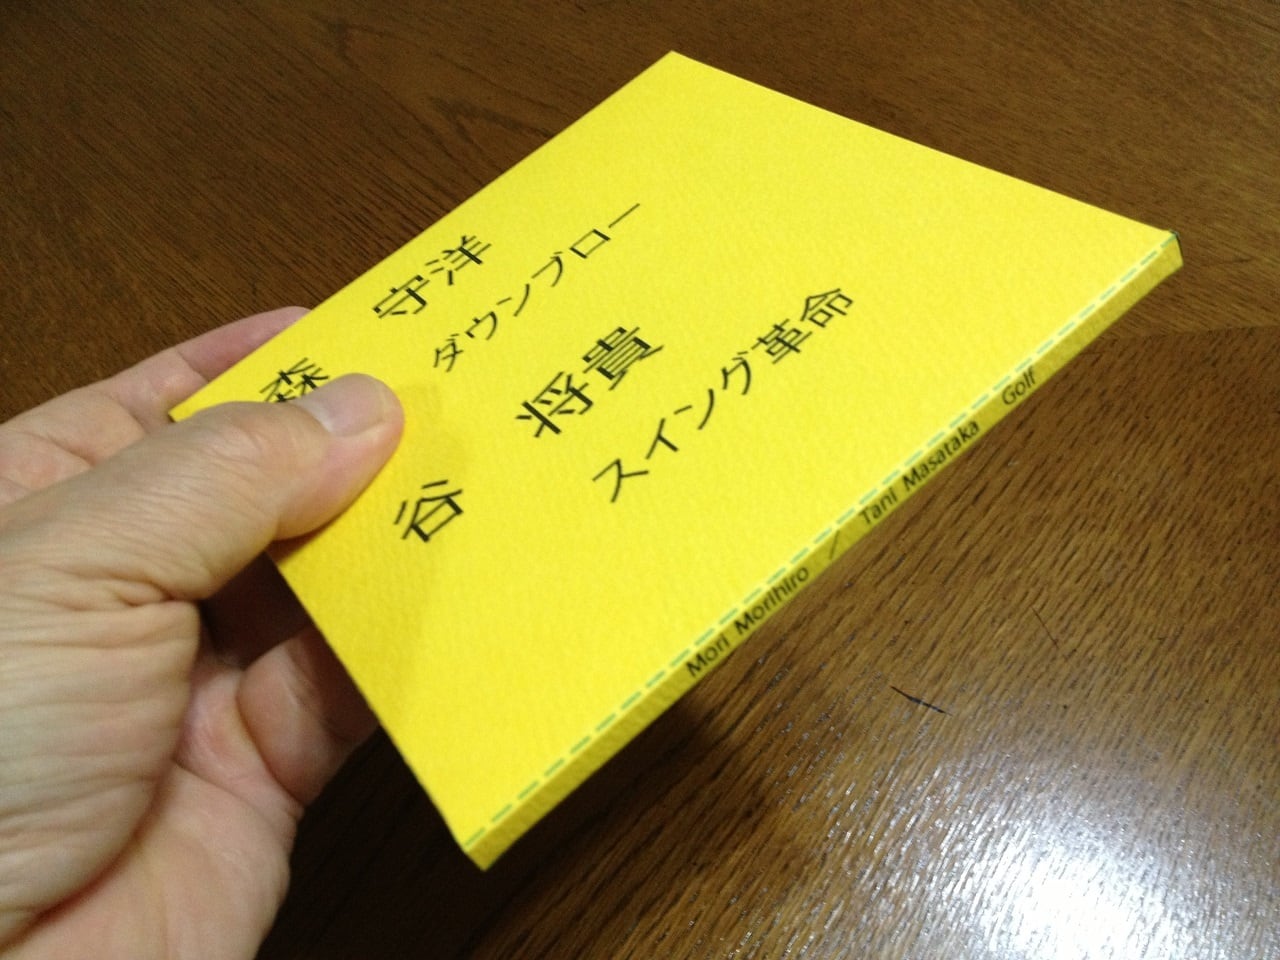 森 守洋
ダウンブロー
谷 将貴
スイング革命
Mori Morihiro / Tani Masataka Golf